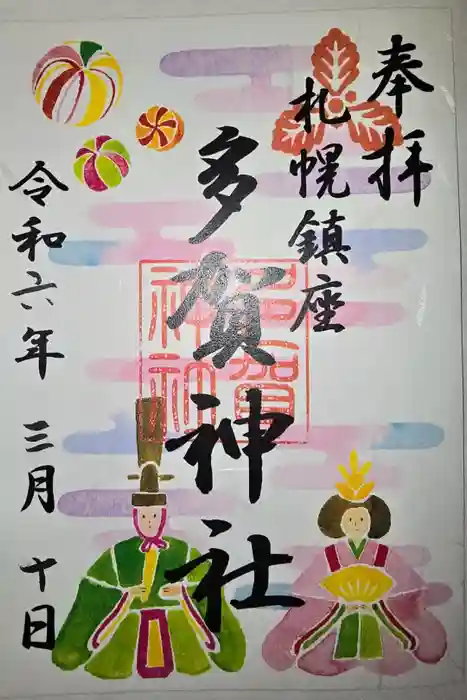 奉拝
札幌鎮座
多賀神社
令和六年 三月 十日